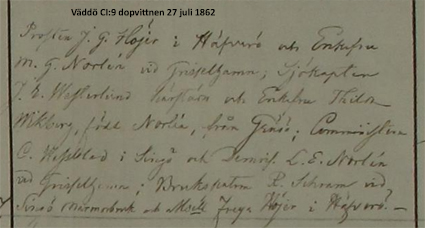 Väddö CI:9 dopvittnen 27 juli 1862
Prosten J. G. Höjer i Häfverö och Enkefru
M. G. Norlén vid Grisslehamn; Sjökapten
J. E. Westerlund och Enkefru Thilda
Wikberg, född Norlén, från
C. i Singö och Demois. L. E. Norlén
vid Grisslehamn; Brukspatron R. Schram vid
Singö Marmorbrok och Msell Freya Höjer i Häfverö.—